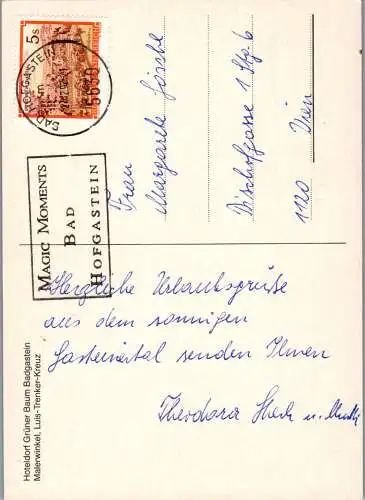 5 S
BAD HOFGASTEIN
5630
MAGIC MOMENTS
BAD
HOFGASTEIN
Frau
Margarete
Bischoffgasse 1 Stg. 6
1120 Wien
Herzliche Urlaubsgrüße
aus dem sonnigen
Gasteinertal senden Ihnen
Theodora
Hoteldorf Grüner Baum Badgastein
Malerwinkel, Luis-Trenker-Kreuz